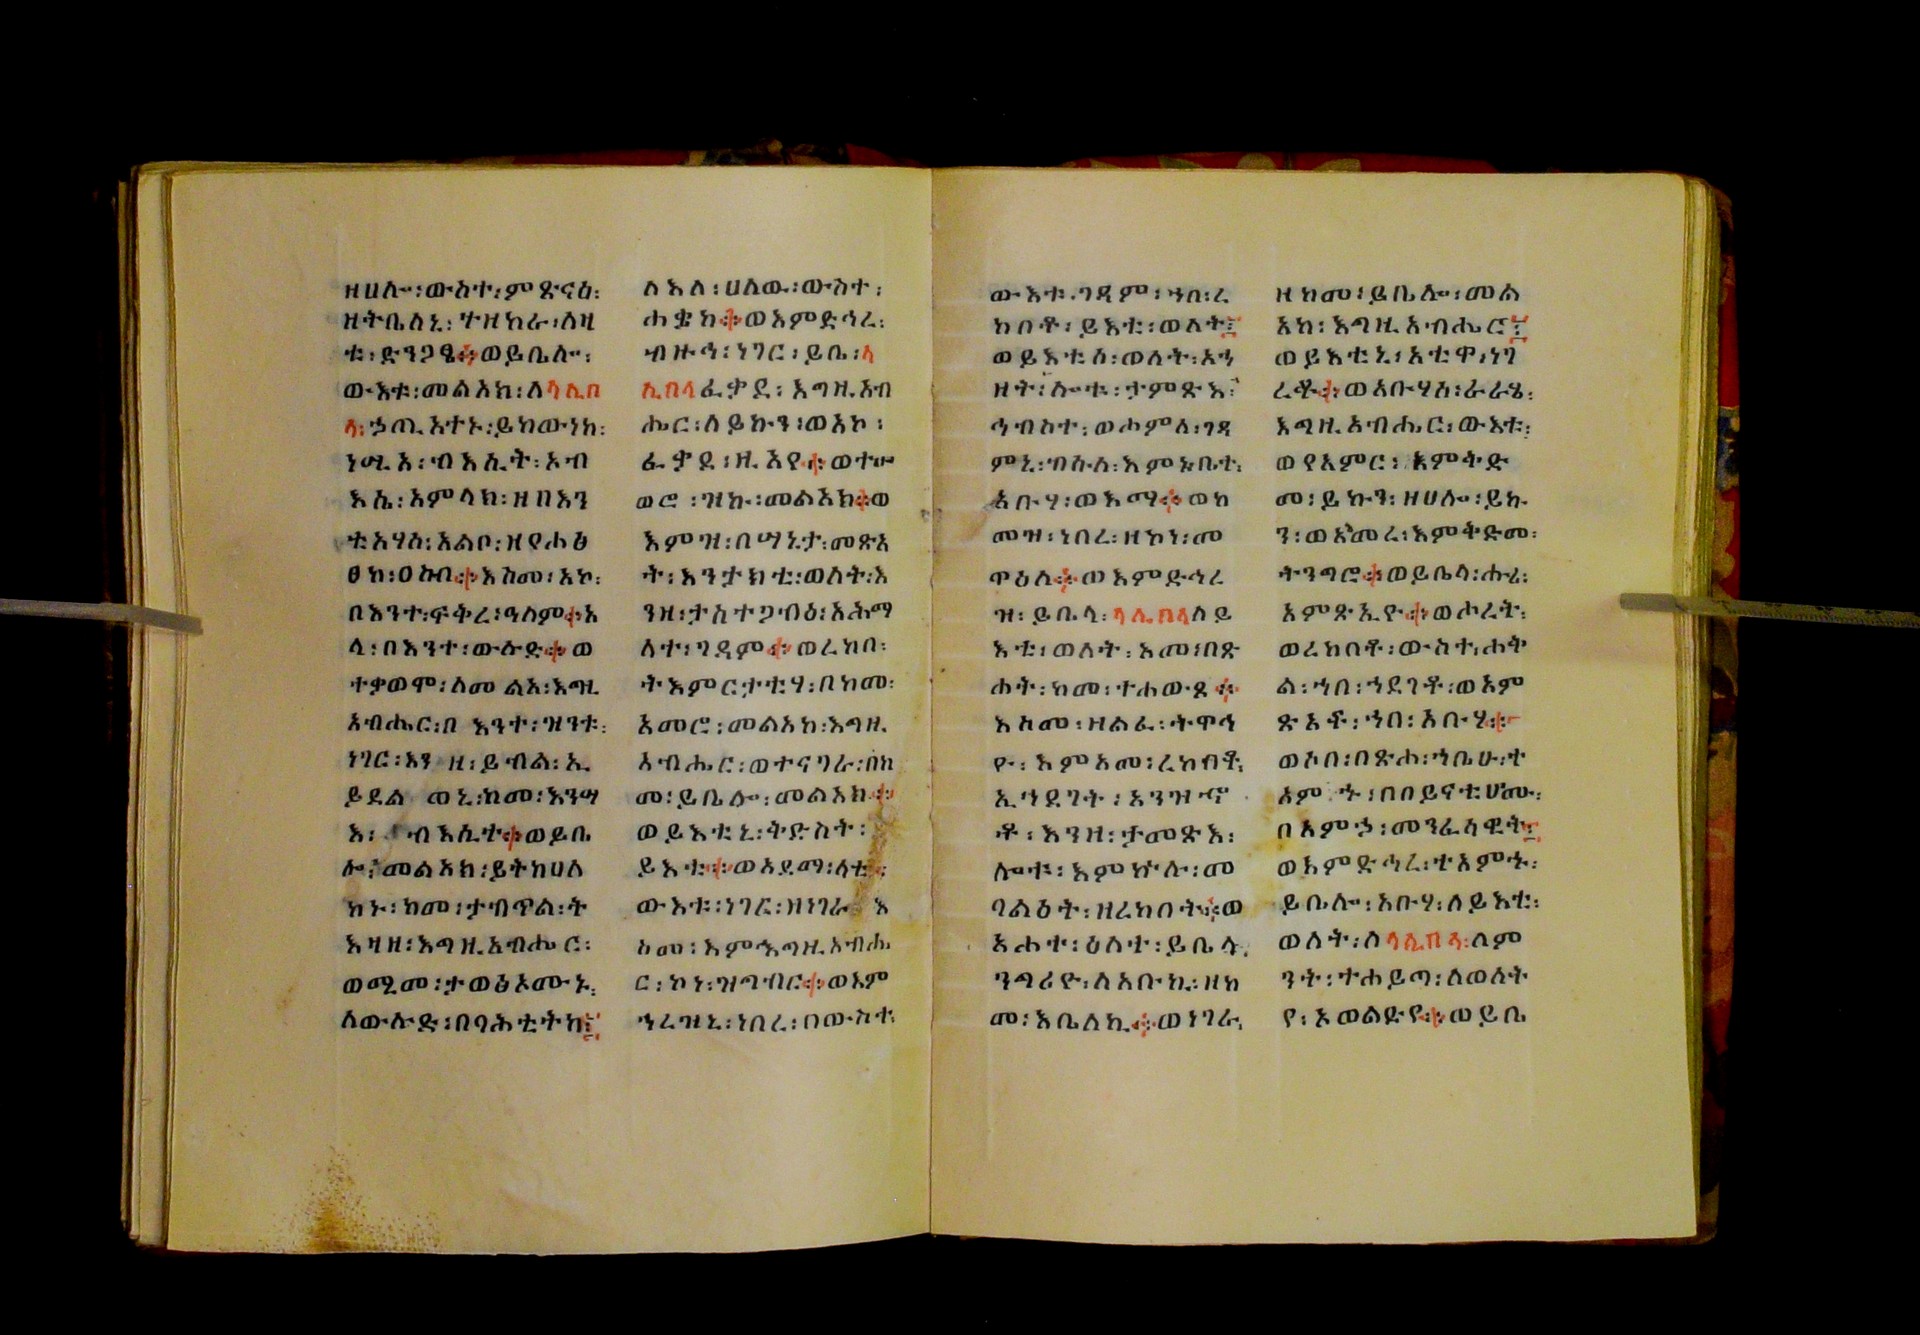 ዘሀሎ፡ውስተ፡ምጽናዕ፡
ዘትቤለኒ፡ ተዘከራ፡ለዛ
ቲ፡ድንጋፄ።ወይቤሎ፡
ውእቱ፡መልአክ፡ለላሊበ
ላ፡ኃጢአተኑ፡ይከውነከ፡
ነሢአ፡ብእሲት፡አብ
እሴ፡አምላክ፡ዘበእን
ቲአሃስ፡አልቦ፡ዘየሐፅ
ፀከ፡ዐስበ።እስመ፡አኮ፡
በእንተ፡ፍቅረ፡ዓለም።አ
ላ፡በእንተ፡ውሉድ።ወ
ተቃወሞ፡ለመልአ፡እግዚ
አብሔር፡በ እንተ፡ዝንቱ፡
ነገር፡እን ዘ፡ይብል፡ኢ
ይደል ወኒ፡ከመ፡እንሣ
እ፡ ብእሲተ።ወይቤ
ሎ፡መልአክ፡ይትከሀለ
ከኑ፡ከመ፡ታብጥል፡ት
እዛዘ፡እግዚአብሔር፡
ወሚመ፡ታወፅኦሙኑ፡
ለውሉድ፡በባሕቲትከ።
ለእለ፡ሀለዉ፡ውስተ፡
ሐቌከ።ወእምድኅረ፡
ብዙኅ፡ነገር፡ይቤ፡ላ
ሊበላፈቃደ፡እግዚአብ
ሔር፡ለይኩን፡ወአኮ፡
ፈቃደ፡ዚአየ።ወተሠ
ወሮ፡ዝኩ፡መልአክ።ወ
እምዝ፡በሣኒታ፡መጽአ
ት፡እንታክቲ፡ወለት፡እ
ንዘ፡ታስተጋብዕ፡አሕማ
ለተ፡ገዳም።ወረከበ፡
ትእምርታቲሃ፡በከመ፡
አመሮ፡መልአከ፡እግዚ
አብሔር፡ወተናገራ፡በከ
መ፡ይቤሎ፡መልአክ።
ወይእቲኒ፡ትድስት፡
ይእቲ።ወአደማ፡ለቲ፡
ውእቱ፡ነገር፡ዘነገራ እ
ስመ፡እምእግዚአብሔ
ር፡ኮነ፡ዝግብር።ወእም
ኅረዝኒ፡ነበረ፡በውስተ
ውእቱ፡ገዳም፡ኀበ፡ረ
ከቦቶ፡ይእቲ፡ወለት።
ወይእቲስ፡ወለት፡አኀ
ዘት፡ሎቱ፡ታምጽእ፡
ኅብስተ፡ወሐምለ፡ገዳ
ምኒ፡ብሱለ፡እምኔቤተ፡
አቡሃ፡ወእማ።ወከ
መዝ፡ነበረ፡ዘኮነ፡መ
ዋዕለ።ወእምድኅረ
ዝ፡ይቤላ፡ላሊበላለይ
እቲ፡ወለት፡እመ፡በጽ
ሐት፡ከመ፡ተሐውጾ።
እስመ፡ዘልፈ፡ትዋኅ
ዮ፡እምአመ፡ረከብቶ፡
ኢኀደገት፡አንዝኆ
ቶ፡እንዘ፡ታመጽእ፡
ሎቱ፡እምኵሉ፡መ
ባልዕት፡ዘረከበት።ወ
አሐተ፡ዕለተ፡ይቤላ፡
ንግሪዮ፡ለአቡኪ፡ዘከ
መ፡እቤለኪ።ወነገራ
ዘከመ፡ይቤሎ፡መል
አከ፡እግዚአብሔር።
ወይእቲኒ፡አቲዋ፡ነገ
ረቶ።ወአቡሃስ፡ራራሄ፡
እግዚአብሔር፡ውእቱ፡
ወየአምር፡እምቅድ
መ፡ይኩን፡ዘሀሎ፡ይኩ
ን፡ወአእመረ፡እምቅድመ፡
ትንግሮ።ወይቤላ፡ሑሪ፡
አምጽኢዮ።ወሖረት፡
ወረከበቶ፡ውስተ፡ሐቅ
ል፡ኀበ፡ኀደገቶ፡ወአም
ጽአቶ፡ኀበ፡አቡሃ።
ወሶበ፡በጽሐ፡ኀቤሁ፡ተ
አምኁ፡በበይናቲሆሙ፡
በአምኃ፡መንፈሳዊት።
ወእምድኅረ፡ተአምኁ፡
ይቤሎ፡አቡሃ፡ለይእቲ፡
ወለት፡ለላሊበላ፡ለም
ንት፡ተሐይጣ፡ለወለት
የ፡ኦወልድየ።ወይቤ